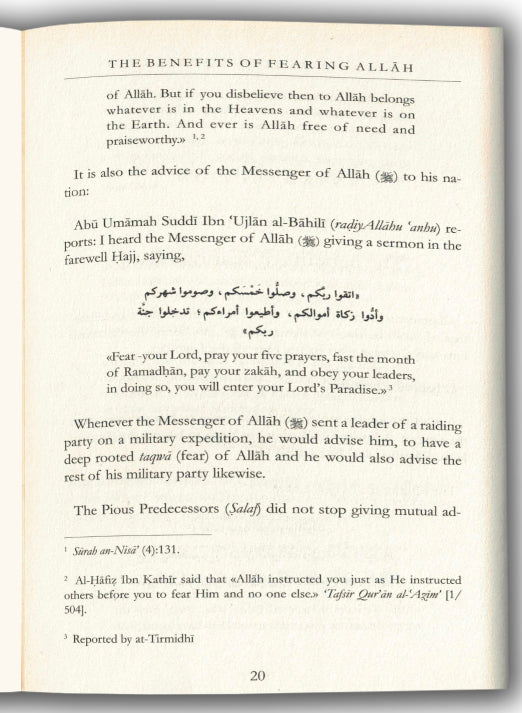 THE BENEFITS OF FEARING ALLĀH
of Allāh. But if you disbelieve then to Allāh belongs
whatever is in the Heavens and whatever is on
the Earth. And ever is Allāh free of need and
praiseworthy.» 1, 2
It is also the advice of the Messenger of Allāh (ﷺ) to his na-
tion:
Abū Umāmah Suddī Ibn ‘Ujlān al-Bāhilī (raḍiyAllāhu ‘anhu) re-
ports: I heard the Messenger of Allāh (ﷺ) giving a sermon in the
farewell Ḥajj, saying,
«اتقوا ربُّكم، وصلُّوا خَمْسَكم، وصوموا شهركم
وأدُّوا زكاة أموالكم، وأطيعوا أمراءكم؛ تدخلوا جنَّة
ربكم»
«Fear -your Lord, pray your five prayers, fast the month
of Ramaḍhān, pay your zakāh, and obey your leaders,
in doing so, you will enter your Lord’s Paradise.» 3
Whenever the Messenger of Allāh (ﷺ) sent a leader of a raiding
party on a military expedition, he would advise him, to have a
deep rooted taqwā (fear) of Allāh and he would also advise the
rest of his military party likewise.
The Pious Predecessors (Ṣalaf) did not stop giving mutual ad-
1 Sūrah an-Nīsā’ (4):131.
2 Al-Ḥāfiẓ Ibn Kathīr said that «Allāh instructed you just as He instructed
others before you to fear Him and no one else.» ‘Tafsīr Qur’ān al-‘Aẓīm’ [1/
504].
3 Reported by at-Tirmidhī
20